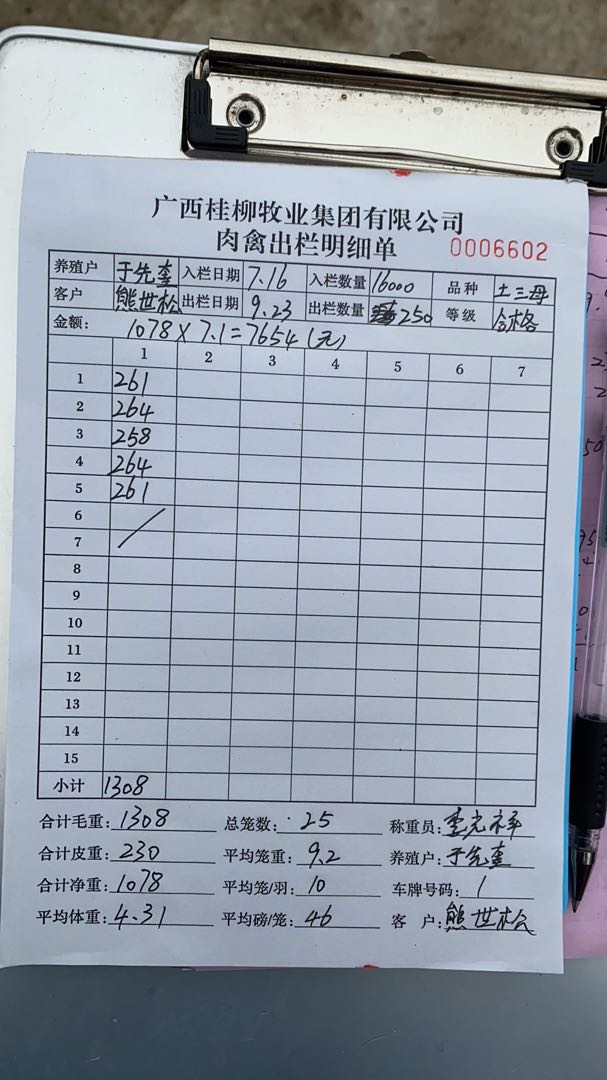 广西桂柳牧业集团有限公司
肉禽出栏明细单 0006602
养殖户 于先奎 入栏日期 7.16 入栏数量 16000 品种 土三母
客户 熊世松 出栏日期 9.23 出栏数量 250 等级 合格
金额: 1078×7.1=7654(元)
1 2 3 4 5 6 7
1 261
2 264
3 258
4 264
5 261
6
7
8
9
10
11
12
13
14
15
小计 1308
合计毛重: 1308 总笼数: 25 称重员: 李光祥
合计皮重: 230 平均笼重: 9.2 养殖户: 于先奎
合计净重: 1078 平均笼/羽: 10 车牌号码: 1
平均体重: 4.31 平均磅/笼: 46 客 户: 熊世松